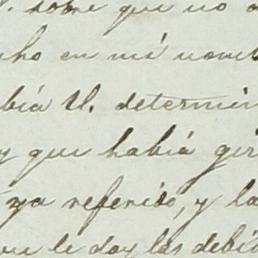 . sobre que no
cho en mi nomb
bia U. determin
y que habia gir
ya referido, y la
le doy las debid